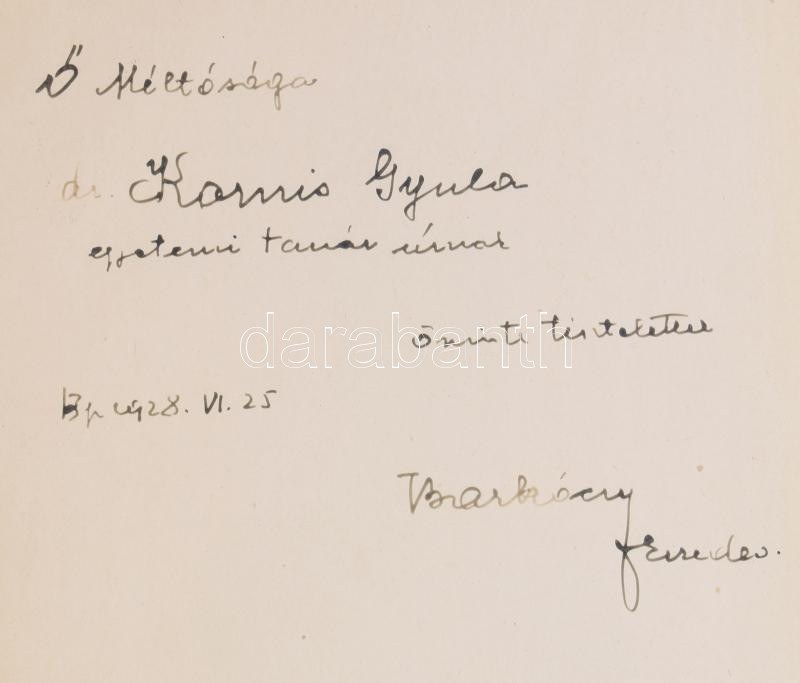 Ő Méltósága
dr. Kornis Gyula
egyetemi tanár úrnak
őszinte tisztelettel
darabanth
Bp 1928. VI. 25
Barkóczy